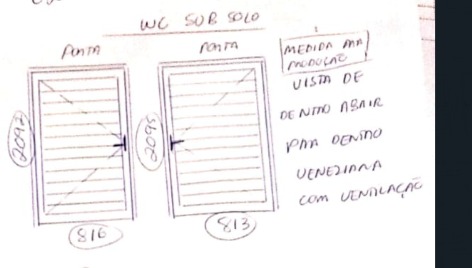 WC SUB SOLO
PORTA
PORTA
MEDIDA PARA
PRODUÇÃO
VISTA DE
DENTRO ABRIR
PARA DENTRO
VENEZIANA
COM VENTILAÇÃO
2092
2095
816
813